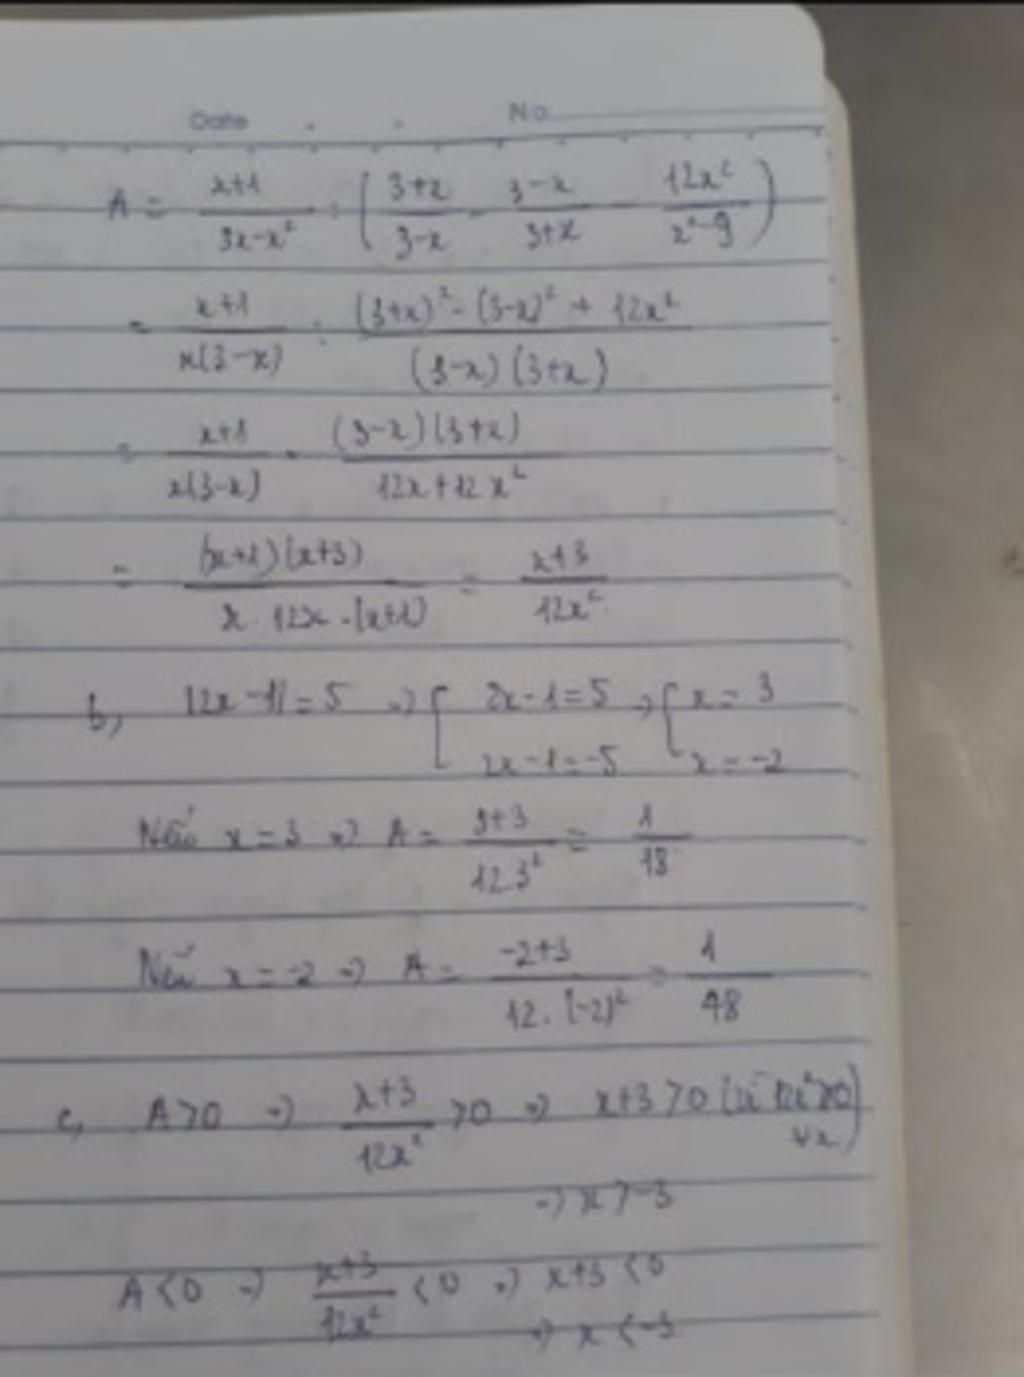 Date No
A = (x+1)/(3x-x²) : ((3+x)/(3-x) - (3-x)/(3+x) - 12x²/(x²-9))
= (x+1)/(x(3-x)) : ((3+x)² - (3-x)² + 12x²)/((3-x)(3+x))
= (x+1)/(x(3-x)) . ((3-x)(3+x))/(12x+12x²)
= ((x+1)(x+3))/(x.12x.(x+1)) = (x+3)/(12x²)
b, |2x-1| = 5 => [ 2x-1=5 => [ x = 3
2x-1=-5 x = -2
Nếu x = 3 => A = (3+3)/(12.3²) = 1/18
Nếu x = -2 => A = (-2+3)/(12.(-2)²) = 1/48
c, A>0 => (x+3)/(12x²) >0 => x+3>0 (vì 12x²>0
∀x)
=> x>-3
A<0 => (x+3)/(12x²) <0 => x+3<0
=> x<-3